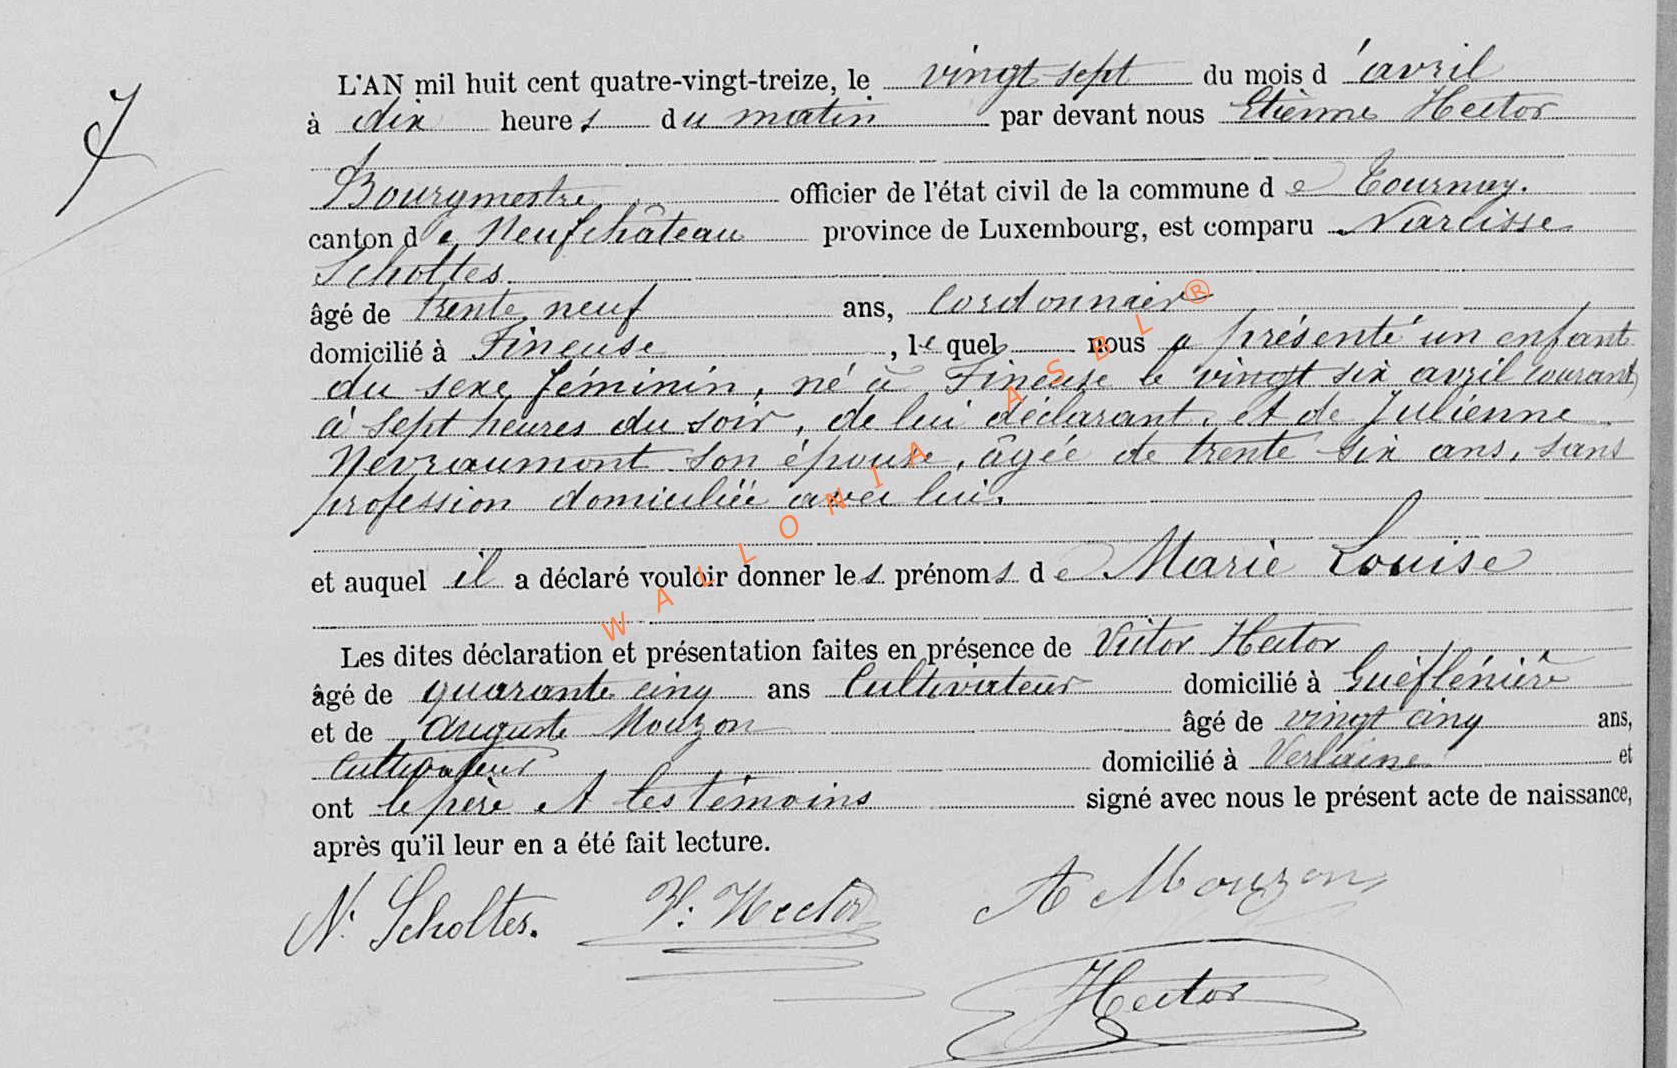 7
L'AN mil huit cent quatre-vingt-treize, le vingt sept du mois d'avril
à dix heures du matin par devant nous Etienne Hector
Bourgmestre officier de l'état civil de la commune de Tournay.
canton de Neufchâteau province de Luxembourg, est comparu Narcisse
Scholtes
âgé de trente neuf ans, Cordonnier
domicilié à Fineuse, lequel nous a présenté un enfant
du sexe féminin, né à Fineuse le vingt six avril courant
à sept heures du soir, de lui déclarant, et de Julienne
Nevraumont son épouse, âgée de trente six ans, sans
profession domiciliée avec lui.
et auquel il a déclaré vouloir donner les prénoms de Marie Louise
Les dites déclaration et présentation faites en présence de Victor Hector
âgé de quarante cinq ans Cultivateur domicilié à
et de Auguste Mouzon âgé de vingt cinq ans,
Cultivateur domicilié à Verlaine et
ont le père et les témoins signé avec nous le présent acte de naissance,
après qu'il leur en a été fait lecture.
N. Scholtes. V. Hector A Mouzon
Hector
WALLONIA ASBL®